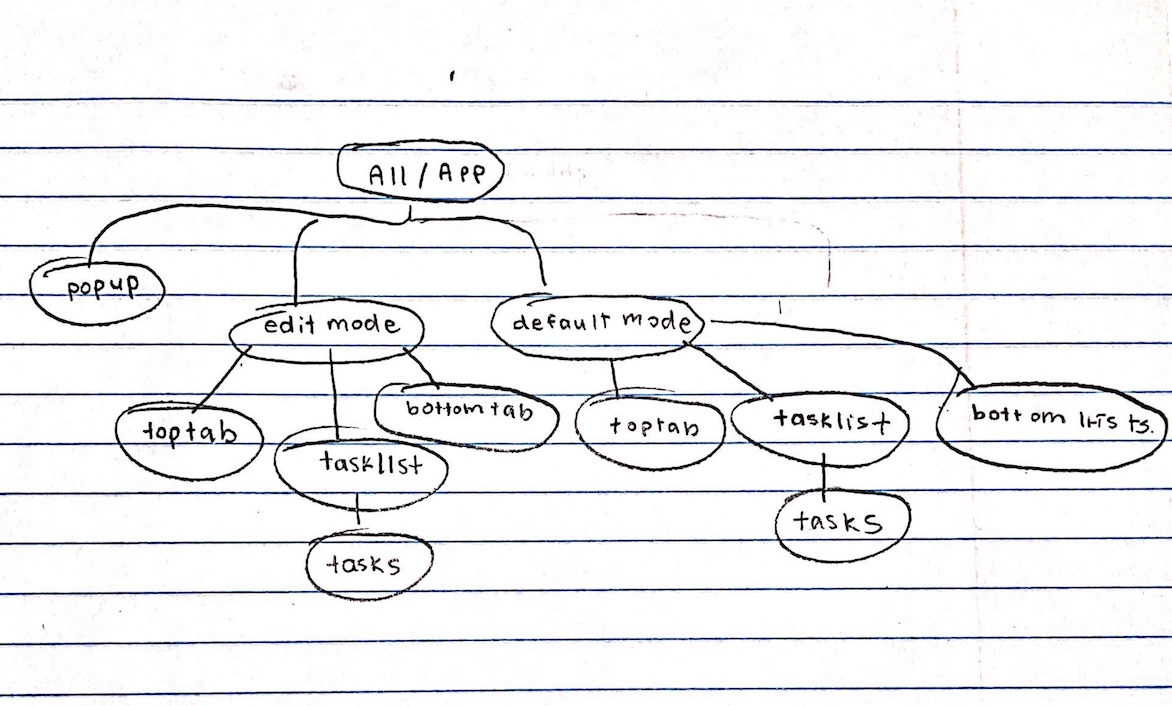 All / App
popup
edit mode
default mode
toptab
tasklist
bottom tab
toptab
tasklist
bottom lists.
tasks
tasks